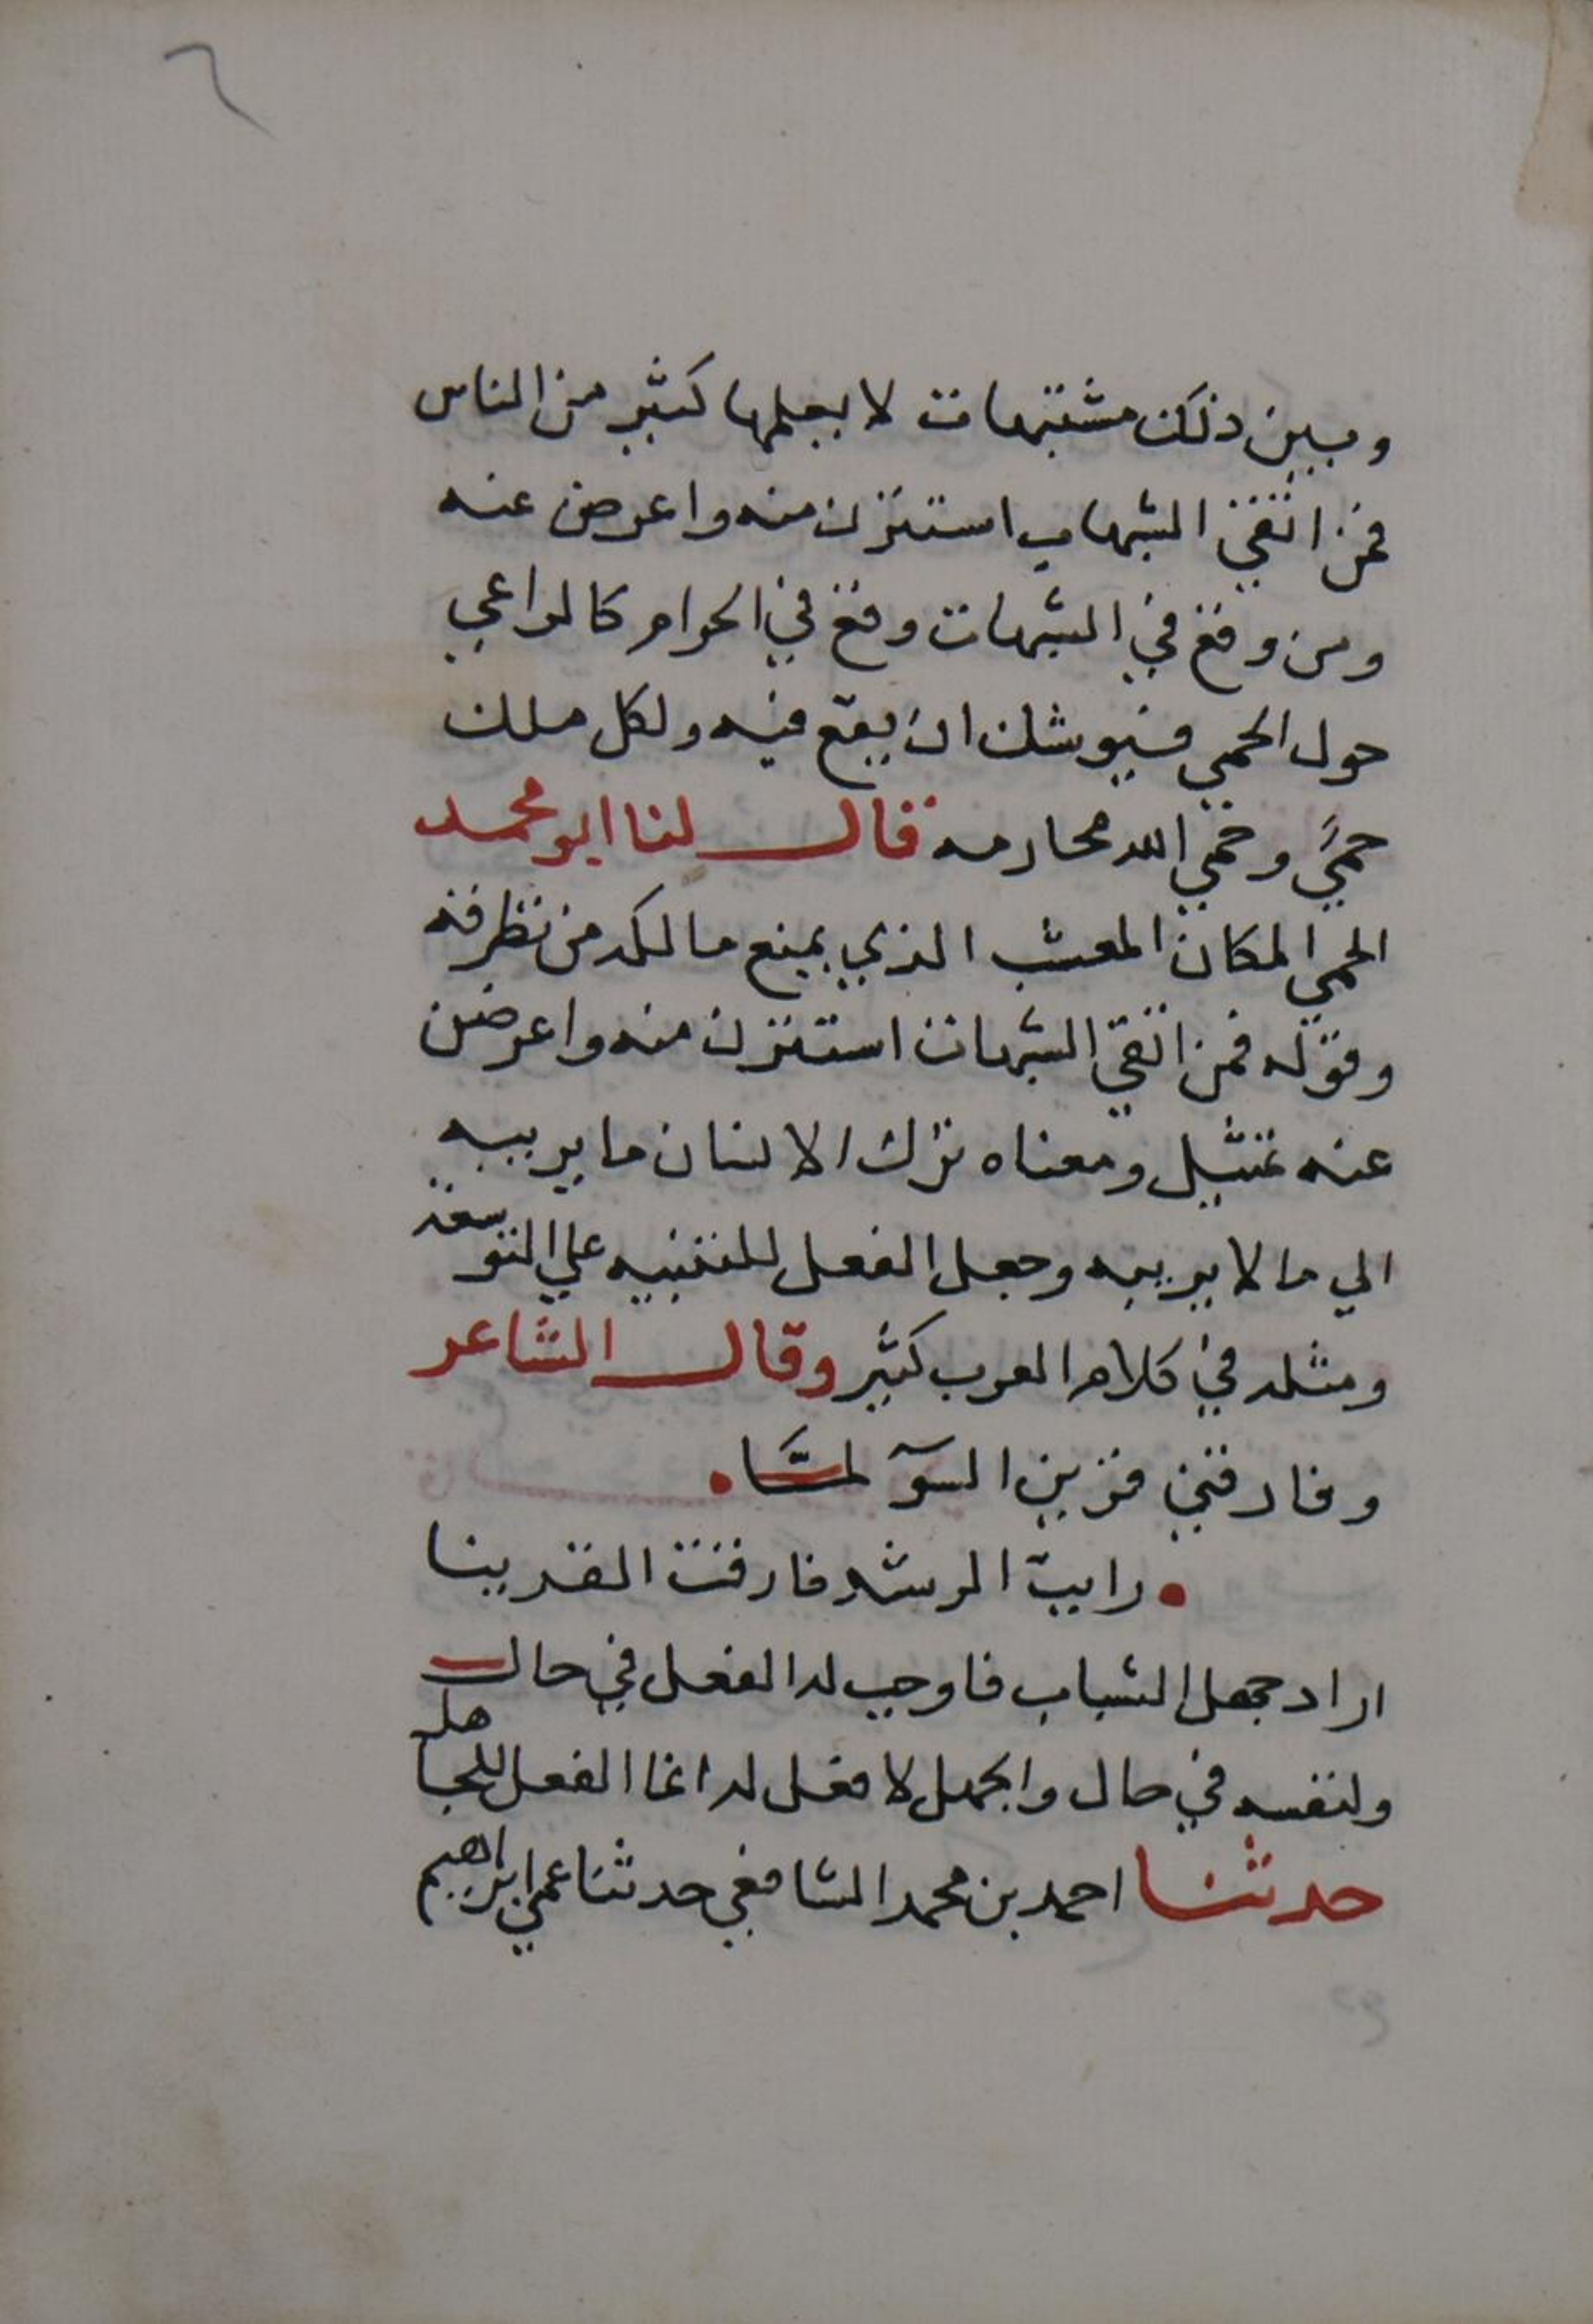 ٦
وبين ذلك مشتبهات لا يعلمها كثير من الناس
فمن اتقي الشبهات استنزن منه واعرض عنه
ومن وقع في الشبهات وقع في الحرام كالراعي
حول الحمي فيوشك ان يقع فيه ولكل ملك
حمًي وحمي الله محارمه قال لنا ابو محمد
الحمي المكان المعشب الذي يمنع مالكه من تطرفه
وقوله فمن اتقي الشبهات استنزن منه واعرض
عنه تمثيل ومعناه ترك الانسان ما يريبه
الي ما لا يريبه وجعل الفعل للتنبيه علي التوسعة
ومثله في كلام العرب كثير وقال الشاعر
وفارقني قرين السوٓ لمَّا
رايت الرشد فارقت القرينا
اراد جهل الشباب فاوجب له الفعل في حال
ولنفسه في حال والجهل لا فعل له انما الفعل للجاهل
حدثنا احمد بن محمد الشافعي حدثنا عمي ابراهيم